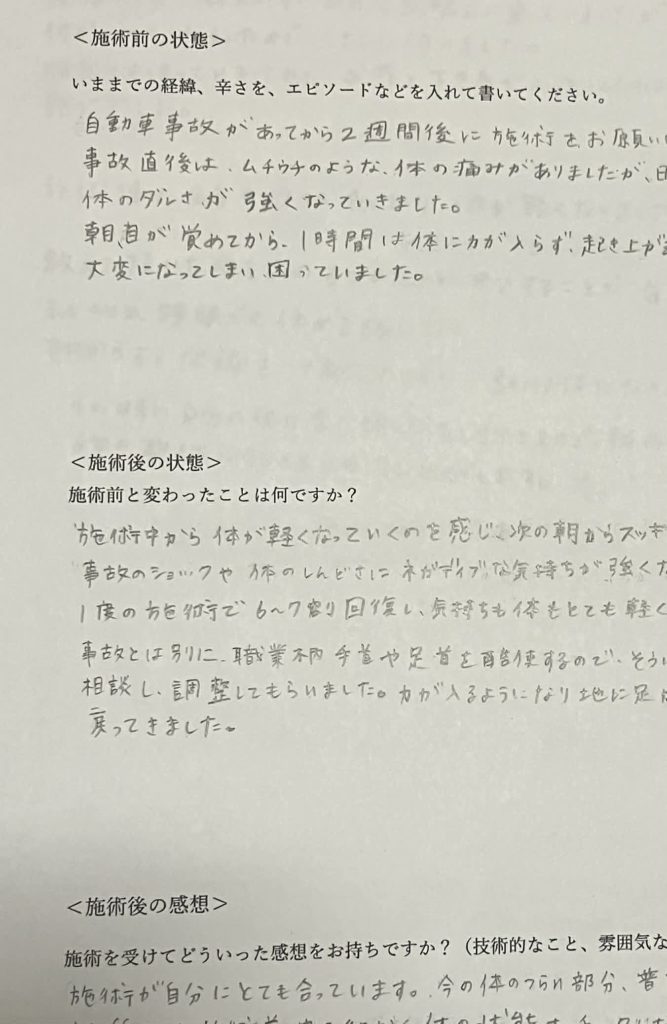 ＜施術前の状態＞
いままでの経緯、辛さを、エピソードなどを入れて書いてください。
自動車事故があってから2週間後に施術をお願い
事故直後は、ムチウチのような、体の痛みがありましたが、日
体のダルさが強くなっていきました。
朝、目が覚めてから、1時間は体に力が入らず、起き上が
大変になってしまい、困っていました。
＜施術後の状態＞
施術前と変わったことは何ですか？
施術中から体が軽くなっていくのを感じ、次の朝からスッキ
事故のショックや体のしんどさにネガティブな気持ちが強くな
1度の施術で6〜7割り回復し、気持ちも体もとても軽く
事故とは別に、職業柄手首や足首を酷使するので、そうい
相談し、調整してもらいました。力が入るようになり地に足が
戻ってきました。
＜施術後の感想＞
施術を受けてどういった感想をお持ちですか？（技術的なこと、雰囲気な
施術が自分にとても合っています。今の体のつらい部分、普